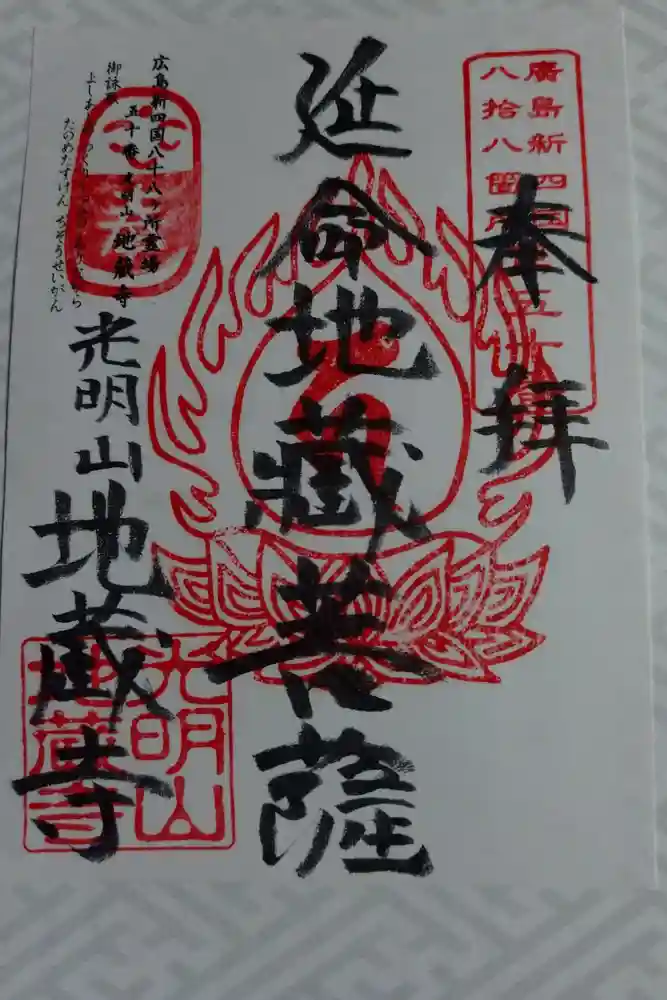 奉拝
廣島新四国
八拾八箇所
延命地蔵菩薩
広島新四国八十八ヶ所霊場
五十番 光明山 地蔵寺
御詠歌
たのめたすけん ぢぞうせいがん
光明山
地蔵寺
光明山
地蔵寺